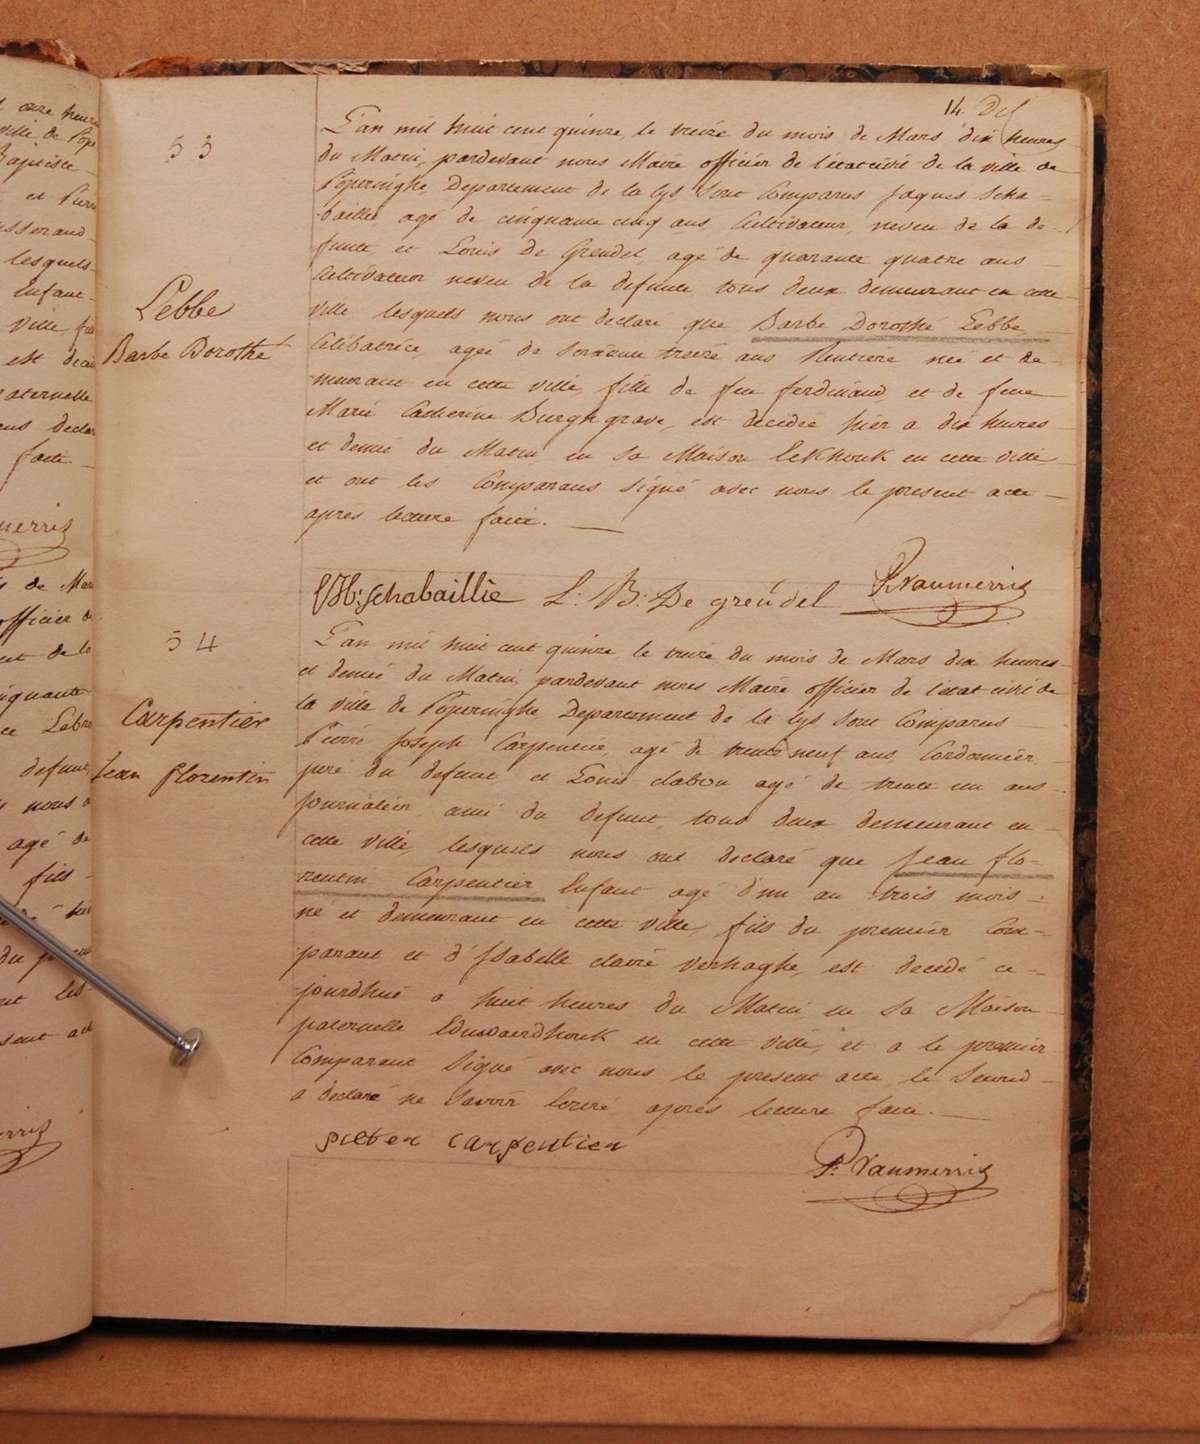 14. Del
53
Lebbe
Barbe Dorothé
L'an mil huit cent quinze le treize du mois de Mars dix heures
du Matin, pardevant nous Maire officier de l'état civil de la ville de
Poperinghe Departement de la Lys sont Comparus Jaques Scha=
baillie, agé de cinquante cinq ans, Cultivateur, neveu de la de-
funte et Louis De Greudel, agé de quarante quatre ans
Cultivateur neveu de la defunte tous deux demeurant en cette
ville lesquels nous ont declaré que Barbe Dorothé Lebbe
Celibatrice, ageé de soixante treize ans Rentiere née et de-
meurant en cette ville, fille de feu ferdinand et de feue
Marie Catherine Burghgrave, est decédée hier a dix heures
et demie du Matin en sa Maison Lekhouk en cette ville
et ont les Comparans signé avec nous le present acte
après lecture faite.
VH: Schabaillie L: B: De greudel P: Vanmerris
54
Carpentier
Jean florentin
L'an mil huit cent quinze, le treize du mois de Mars dix heures
et demie du Matin, pardevant nous Maire officier de l'etat civil de
la ville de Poperinghe, Departement de la Lys sont Comparus
Pierre Joseph Carpentier, agé de trente neuf ans, Cordonnier,
pere du defunt, et Louis clabou agé de trente un ans
Journalier, ami du defunt, tous deux demeurant en
cette ville, lesquels nous ont declaré que Jean flo-
rentin Carpentier Enfant agé d'un an trois mois
né et demeurant en cette ville, fils du premier Com-
parant et d'Isabelle claire Verhaghe, est decedé ce
jourdhui a huit heures du Matin en sa Maison
paternelle Eduwaerdhouk en cette ville, et a le premier
Comparant Signé avec nous le present acte, le second
a declaré ne savoir Ecrire, après lecture faite.
pieter carpentier
P: Vanmerris